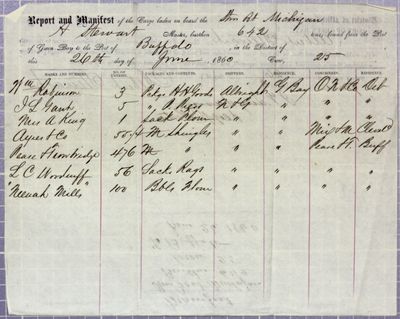 Report and Manifest of the Cargo laden on board the Stm Bt Michigan
H Stewart Master, burthen 642 tons, bound from the Port
of Green Bay to the Port of Buffalo in the District of
this 26th day of June 1860 Crew, 25
MARKS AND NUMBERS. NO. OF ENTRIES. PACKAGES AND CONTENTS. SHIPPERS. RESIDENCE. CONSIGNEES. RESIDENCE.
Wm Robinson 3 Pckgs H H Goods Albright G Bay Det
J L Gant 5 " "
Mrs A King 1 Sack Flour " " " "
Ayres & Co 55 M Shingles " "
Pease & Trowbridge 476 M " " " Pease & T. Buff
L C Woodruff 56 Sack Rags " " " "
"Neenah Mills" 100 Bbls Flour " " " "